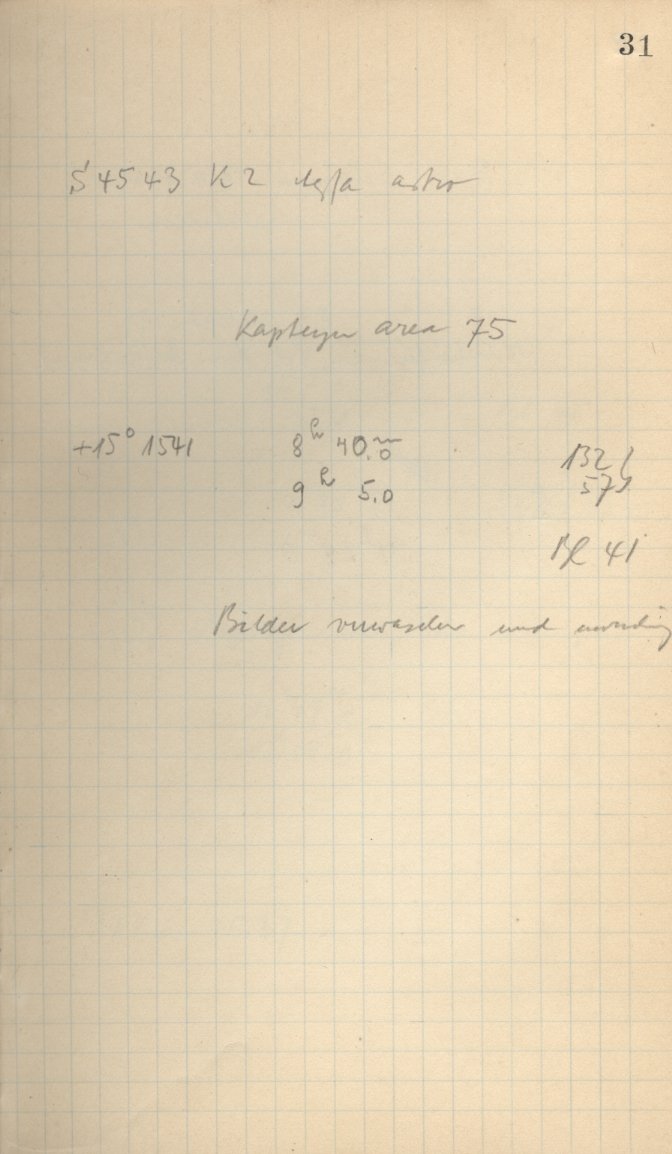 31
S 4543 K 2 Agfa astro
Kapteyn area 75
+15° 1541 8h 40.m0 132
9h 5.0 57
Bl 41
Bilder verwaschen und unruhig